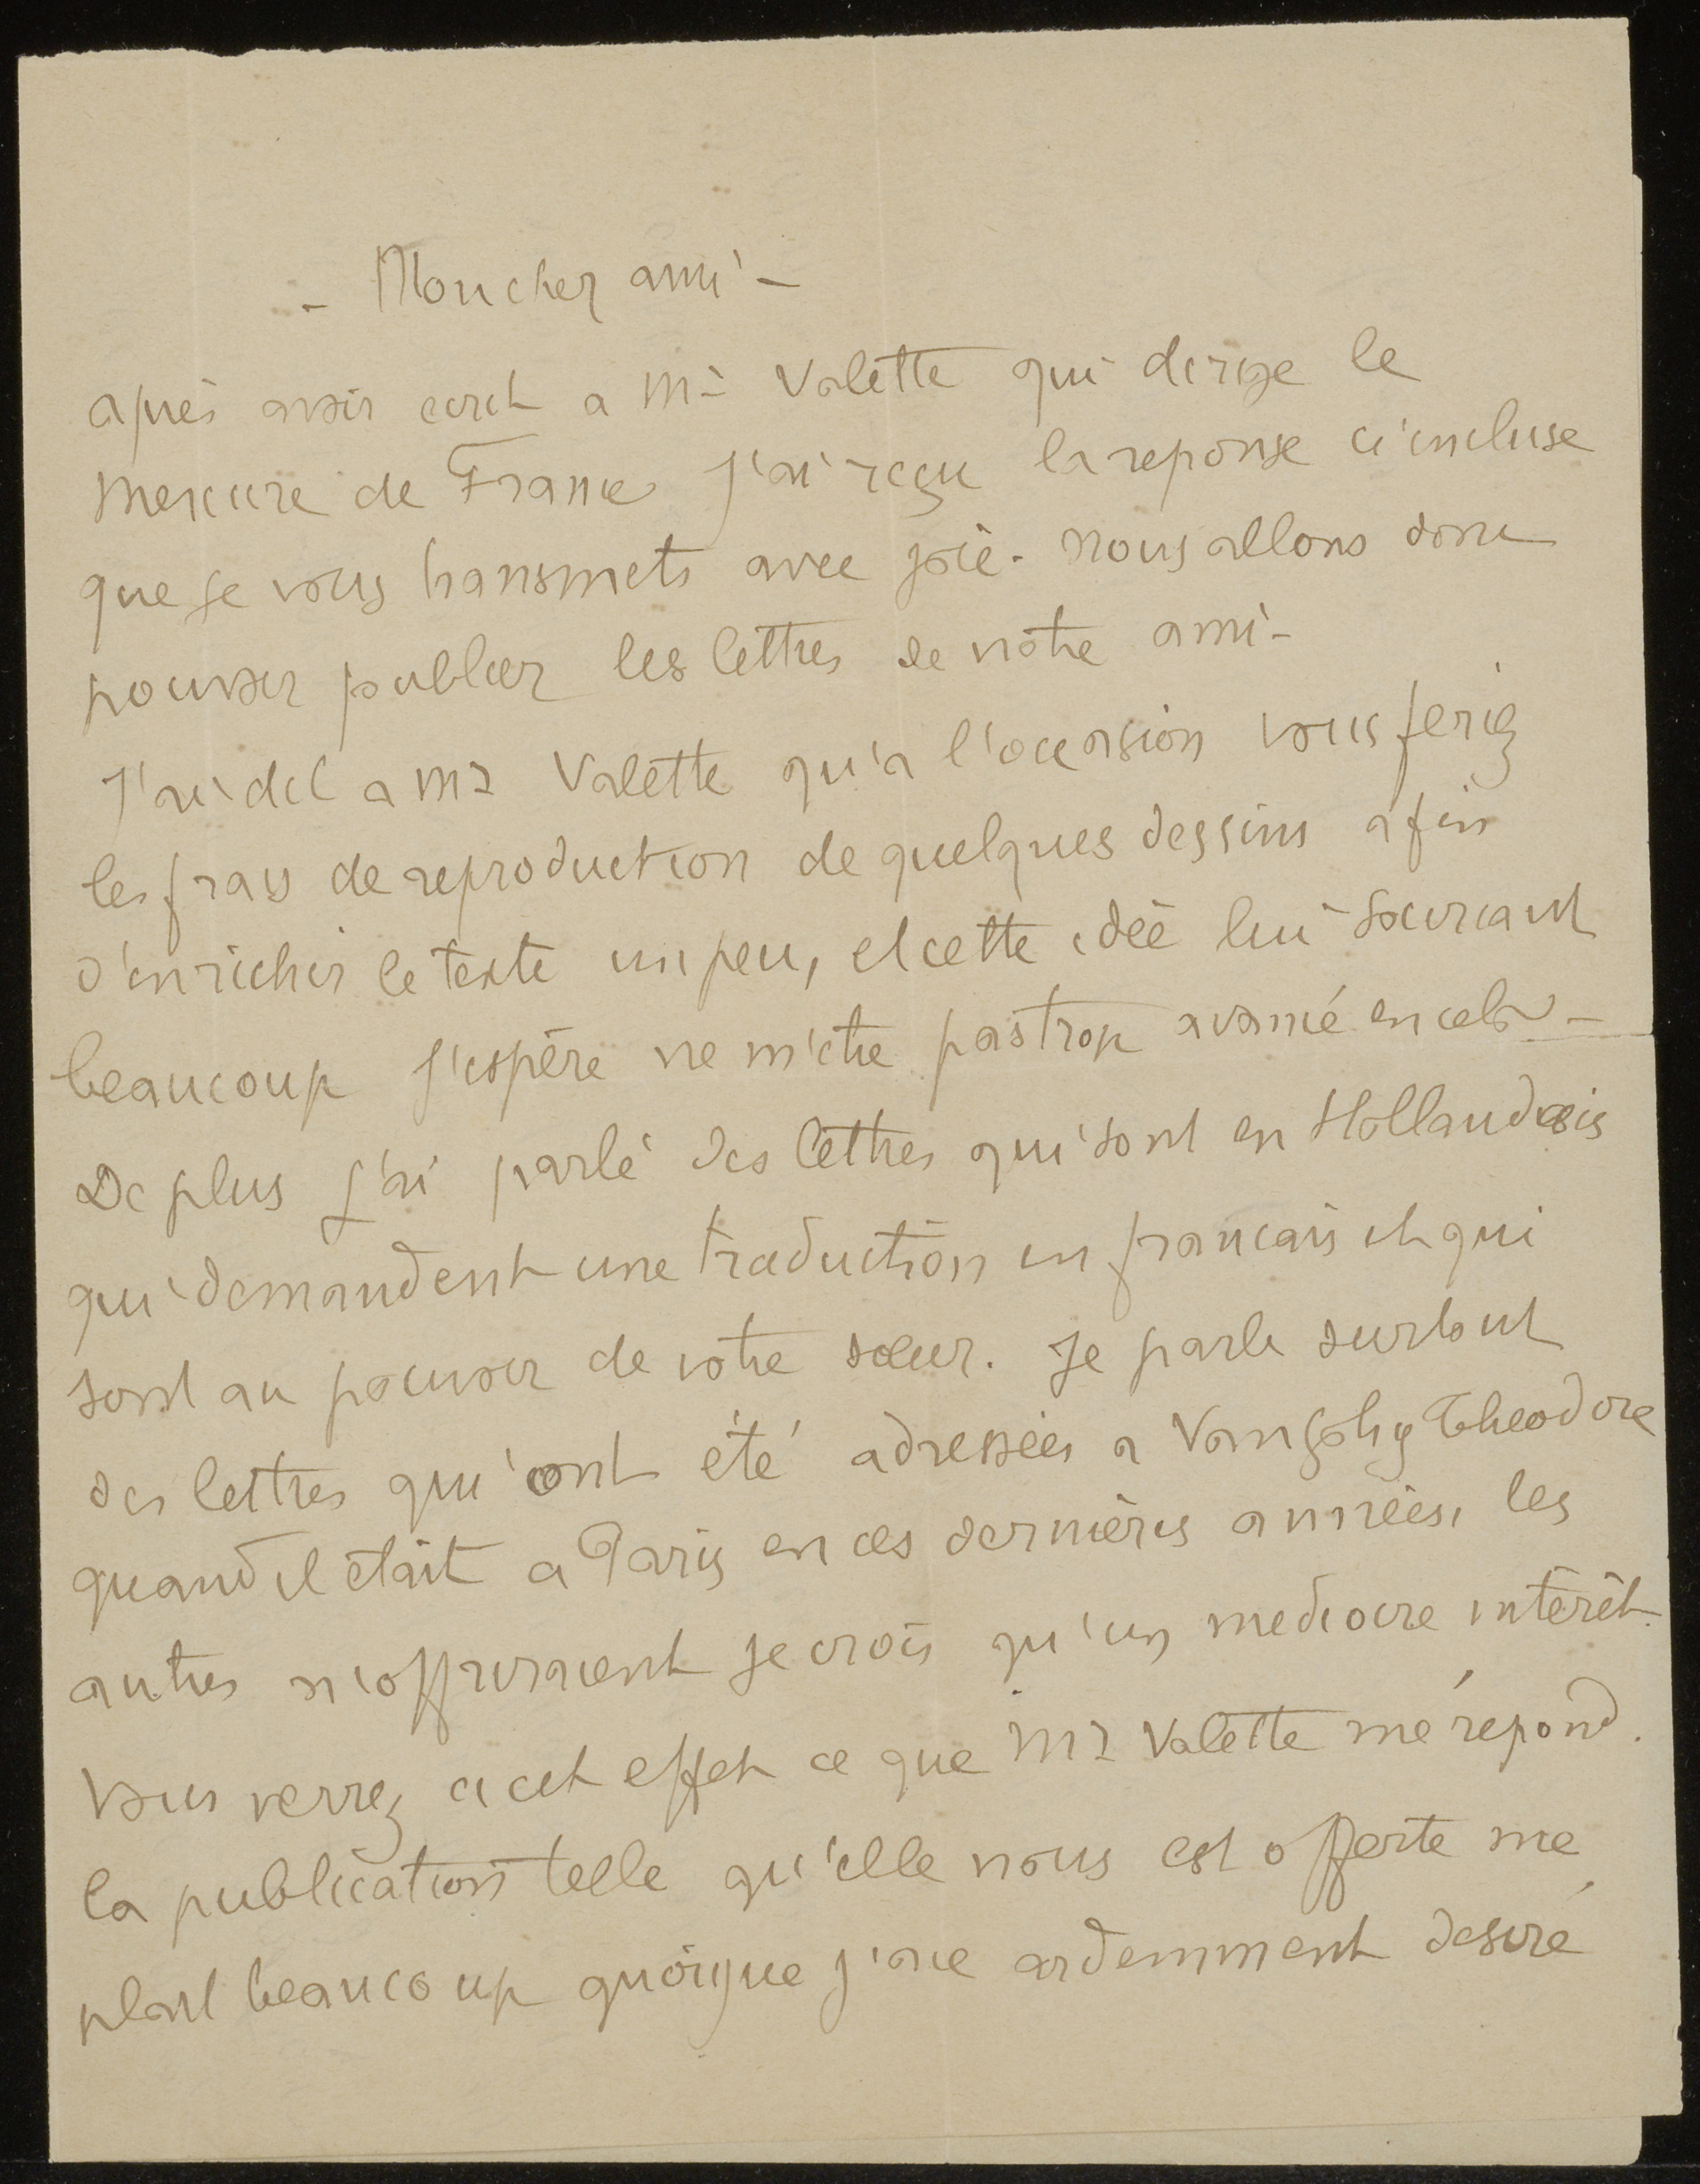 - Mon cher ami -
après avoir ecrit a Mr Valette qui dirige le
Mercure de France j'ai reçu la reponse ci incluse
que je vous transmets avec joie. Nous allons donc
pouvoir publier les lettres de notre ami -
J'ai dit a Mr Valette qu'a l'occasion vous feriez
les frais de reproduction de quelques dessins afin
d'enrichir le texte un peu, et cette idée lui souriant
beaucoup j'espère ne m'etre pas trop avancé en cela -
De plus j'ai parlé des lettres qui sont en Hollandais
qui demandent une traduction en francais et qui
sont au pouvoir de votre sœur. Je parle surtout
des lettres qui ont été adressées a Van gohg Theodore
quand il était a Paris en ces dernières années, les
autres n'offriraient je crois qu'un mediocre intérêt.
Vous verrez a cet effet ce que Mr Valette me répond.
la publication telle qu'elle nous est offerte me
plait beaucoup quoique j'aie ardemment desiré